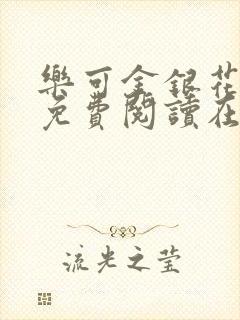 樂可金銀花
免費閱讀在
流光之莹